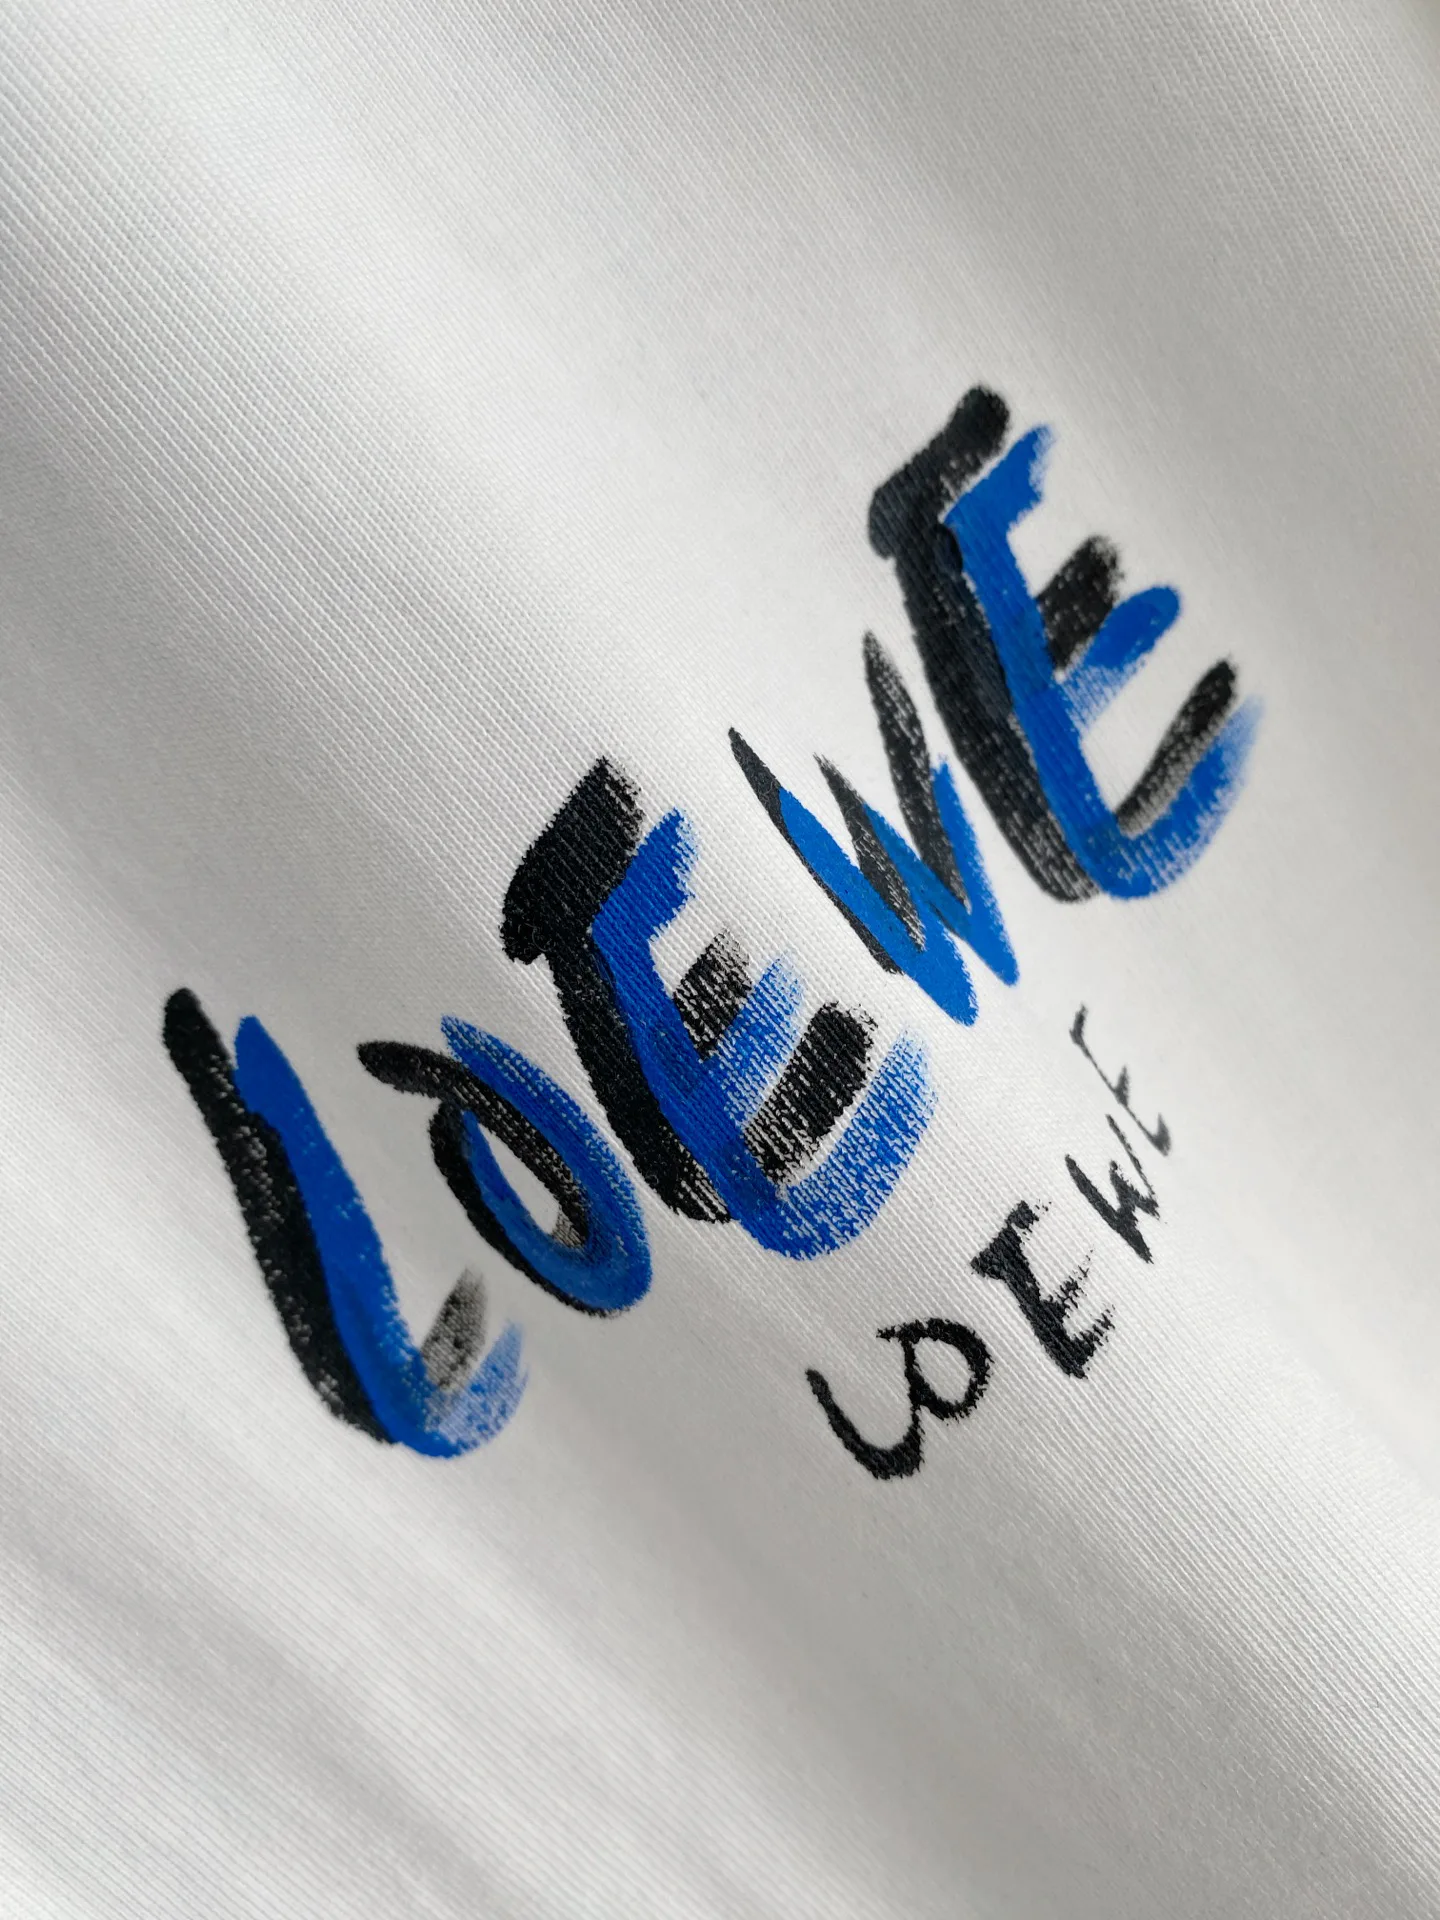 LOEWE
LOEWE